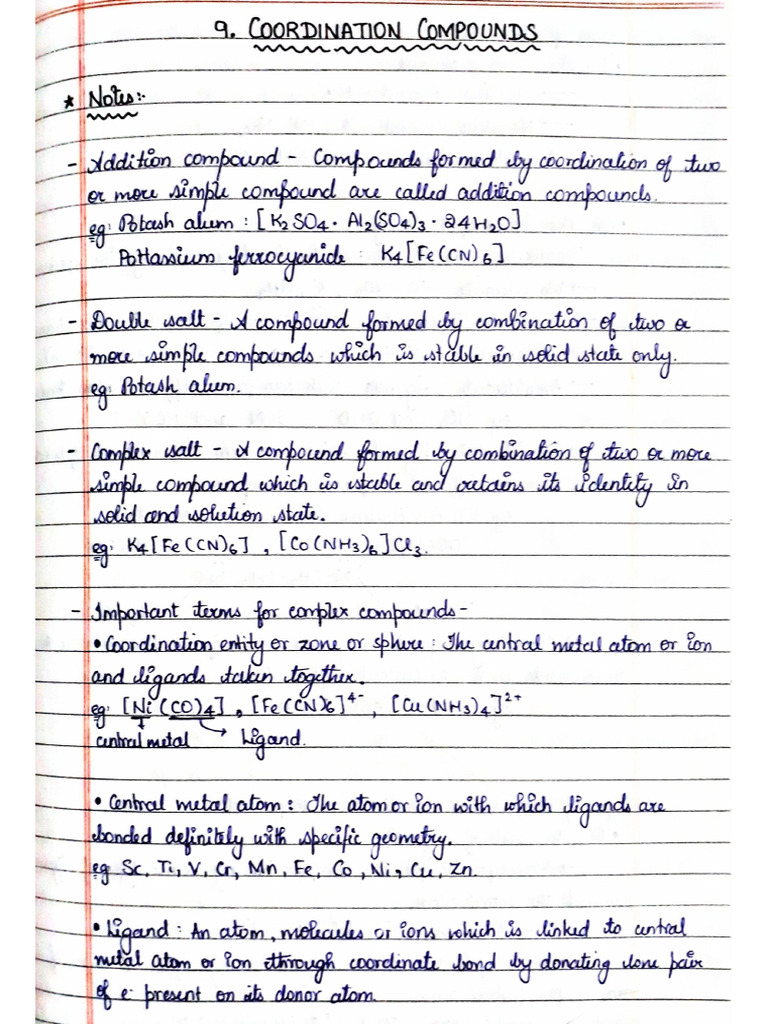 9. COORDINATION COMPOUNDS
* Notes:-
- Addition compound - Compounds formed by coordination of two
or more simple compound are called addition compounds.
eg: Potash alum : [K2SO4. Al2(SO4)3. 24H2O]
Pottassium ferrocyanide : K4[Fe(CN)6]
- Double salt - A compound formed by combination of two or
more simple compounds which is stable in solid state only.
eg: Potash alum.
- Complex salt - A compound formed by combination of two or more
simple compound which is stable and retains its identity in
solid and solution state.
eg: K4[Fe(CN)6] , [Co(NH3)6]Cl3.
- Important terms for complex compounds-
• Coordination entity or zone or sphere : The central metal atom or ion
and ligands taken together.
eg: [Ni(CO)4] , [Fe(CN)6]4- , [Cu(NH3)4]2+
central metal Ligand.
• Central metal atom : The atom or ion with which ligands are
bonded definitely with specific geometry.
eg Sc, Ti, V, Cr, Mn, Fe, Co, Ni, Cu, Zn.
• Ligand : An atom, molecules or ions which is linked to central
metal atom or ion through coordinate bond by donating lone pair
of e- present on its donor atom.